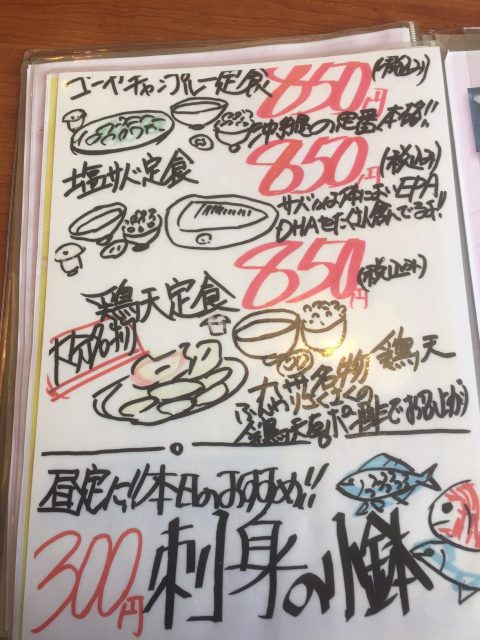 ゴーヤーチャンプルー定食 850円(税込み)
沖縄の定番 本格!!
塩サバ定食 850円(税込み)
サバには体によいEPA
DHAをたくさん含んでいるヨ!!
鶏天定食 850円(税込み)
大分名物
九州名物 鶏天
ふんわりらくらくの
鶏天をポン酢でお召し上がり
昼定に!!本日のおすすめ!!
300円 刺身の小鉢